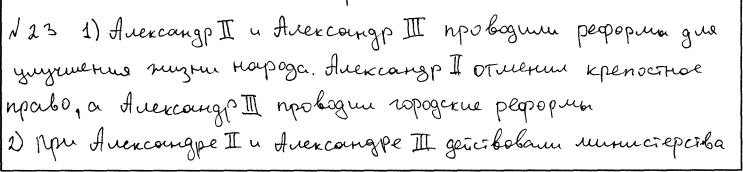 №23 1) Александр II и Александр III проводили реформы для
улучшения жизни народа. Александр II отменил крепостное
право, а Александр III проводил городские реформы
2) При Александре II и Александре III действовали министерства